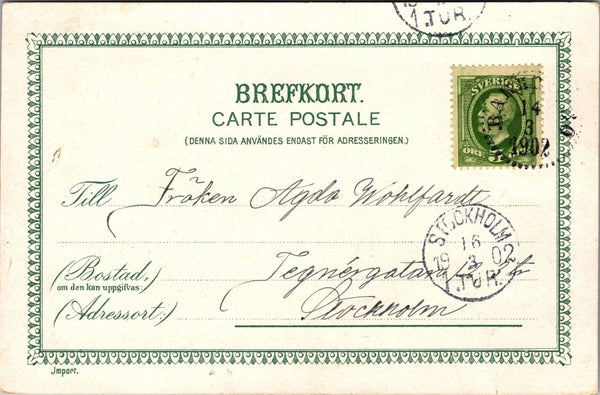 1. TUR.
BREFKORT.
CARTE POSTALE
(DENNA SIDA ANVÄNDES ENDAST FÖR ADRESSERINGEN.)
SVERIGE
14
3
1902
ÖRE
Till Fröken Agda Wohlfardt
STOCKHOLM
16
19 3 02
1. TUR.
(Bostad,
om den kan uppgifvas:)
Tegnérgatan
(Adressort:)
Stockholm
Import.